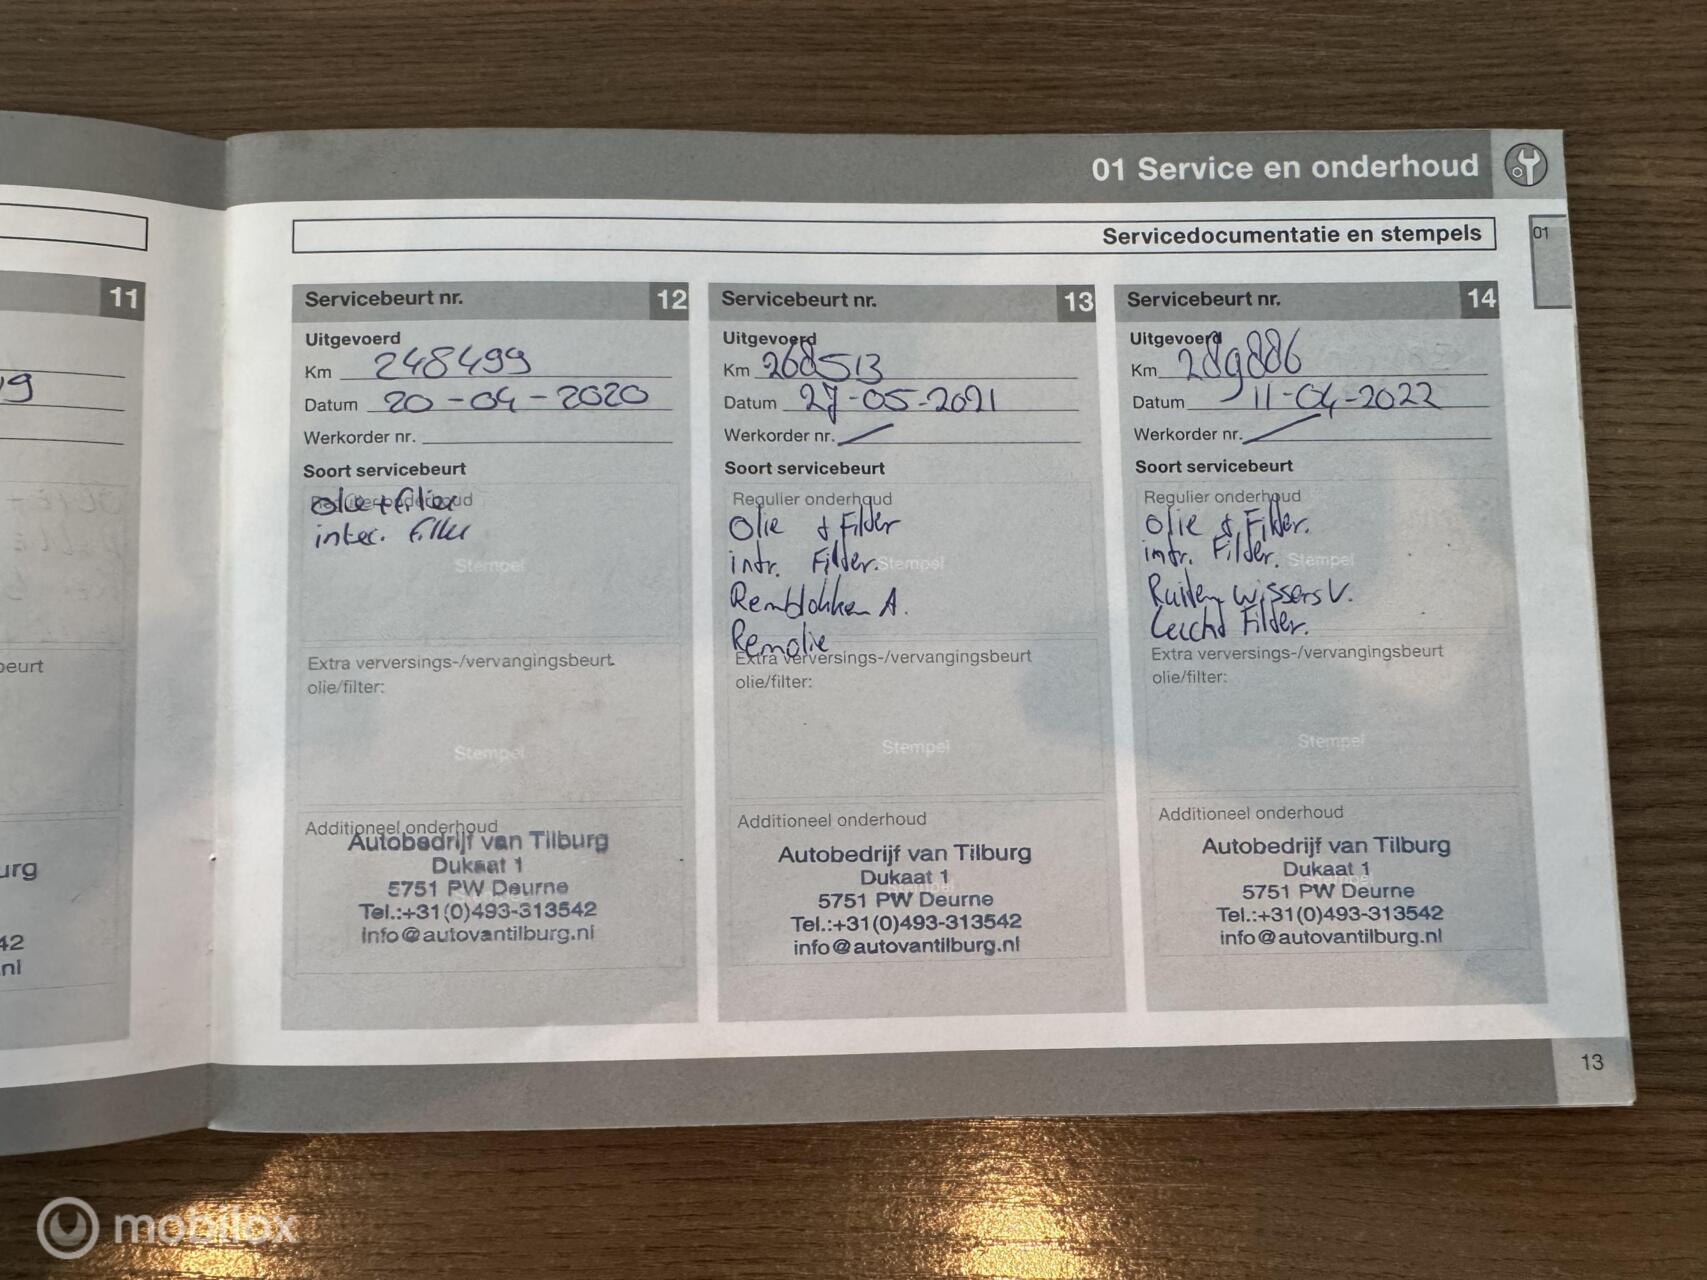 01 Service en onderhoud
Servicedocumentatie en stempels
01
11
19
beurt
urg
42
nl
Servicebeurt nr. 12
Uitgevoerd
Km 248499
Datum 20-04-2020
Werkorder nr.
Soort servicebeurt
Regulier onderhoud
olie + filter
inter. filter
Stempel
Extra verversings-/vervangingsbeurt
olie/filter:
Stempel
Additioneel onderhoud
Autobedrijf van Tilburg
Dukaat 1
5751 PW Deurne
Tel.:+31(0)493-313542
info@autovantilburg.nl
Servicebeurt nr. 13
Uitgevoerd
Km 268513
Datum 27-05-2021
Werkorder nr.
Soort servicebeurt
Regulier onderhoud
Olie & Filder
intr. Filder.
Stempel
Remblokken A.
Remolie
Extra verversings-/vervangingsbeurt
olie/filter:
Stempel
Additioneel onderhoud
Autobedrijf van Tilburg
Dukaat 1
Stempel
5751 PW Deurne
Tel.:+31(0)493-313542
info@autovantilburg.nl
Servicebeurt nr. 14
Uitgevoerd
Km 289886
Datum 11-04-2022
Werkorder nr.
Soort servicebeurt
Regulier onderhoud
Olie & Filder.
intr. Filder.
Stempel
Ruiten wissers V.
Lucht Filder.
Extra verversings-/vervangingsbeurt
olie/filter:
Stempel
Additioneel onderhoud
Autobedrijf van Tilburg
Dukaat 1
Stempel
5751 PW Deurne
Tel.:+31(0)493-313542
info@autovantilburg.nl
13
mobilox